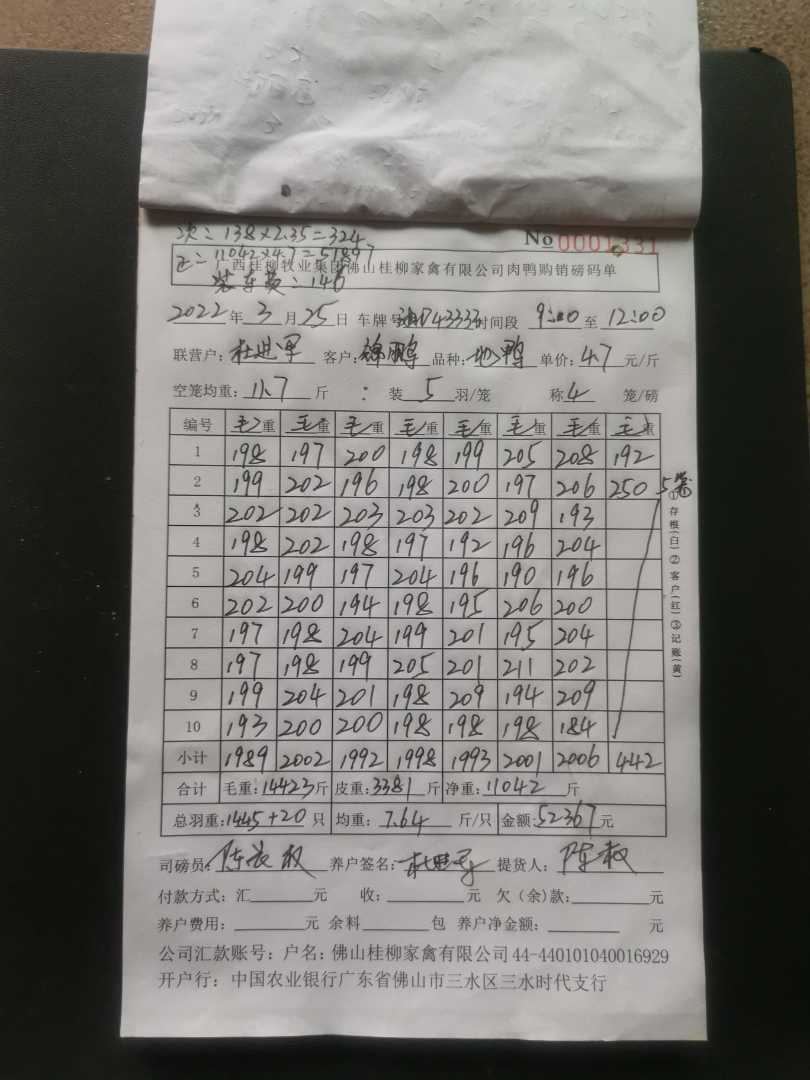 次：138×2.35=324
正：11042×4.7=51897
装车费：146
No 0001331
广西桂柳牧业集团佛山桂柳家禽有限公司肉鸭购销磅码单
2022年3月25日 车牌号 43333 时间段 9:00 至 12:00
联营户：杜进军 客户：锦鹏 品种：地鸭 单价：4.7 元/斤
空笼均重：11.7 斤 : 装 5 羽/笼 称 4 笼/磅
编号 毛重 毛重 毛重 毛重 毛重 毛重 毛重 毛重
1 198 197 200 198 199 205 208 192
2 199 202 196 198 200 197 206 250 5笼
3 202 202 203 203 202 209 193
4 198 202 198 197 192 196 204
5 204 199 197 204 196 190 196
6 202 200 194 198 195 206 200
7 197 198 204 199 201 195 204
8 197 198 199 205 201 211 202
9 199 204 201 198 209 194 209
10 193 200 200 198 198 198 184
小计 1989 2002 1992 1998 1993 2001 2006 442
合计 毛重：14423斤 皮重：3381斤 净重：11042斤
总羽重：1445+20 只 均重：7.64 斤/只 金额：52367元
①存根(白)②客户(红)③记账(黄)
司磅员： 养户签名： 提货人：
付款方式：汇 元 收： 元 欠（余）款： 元
养户费用： 元 余料 包 养户净金额： 元
公司汇款账号：户名：佛山桂柳家禽有限公司44-440101040016929
开户行：中国农业银行广东省佛山市三水区三水时代支行